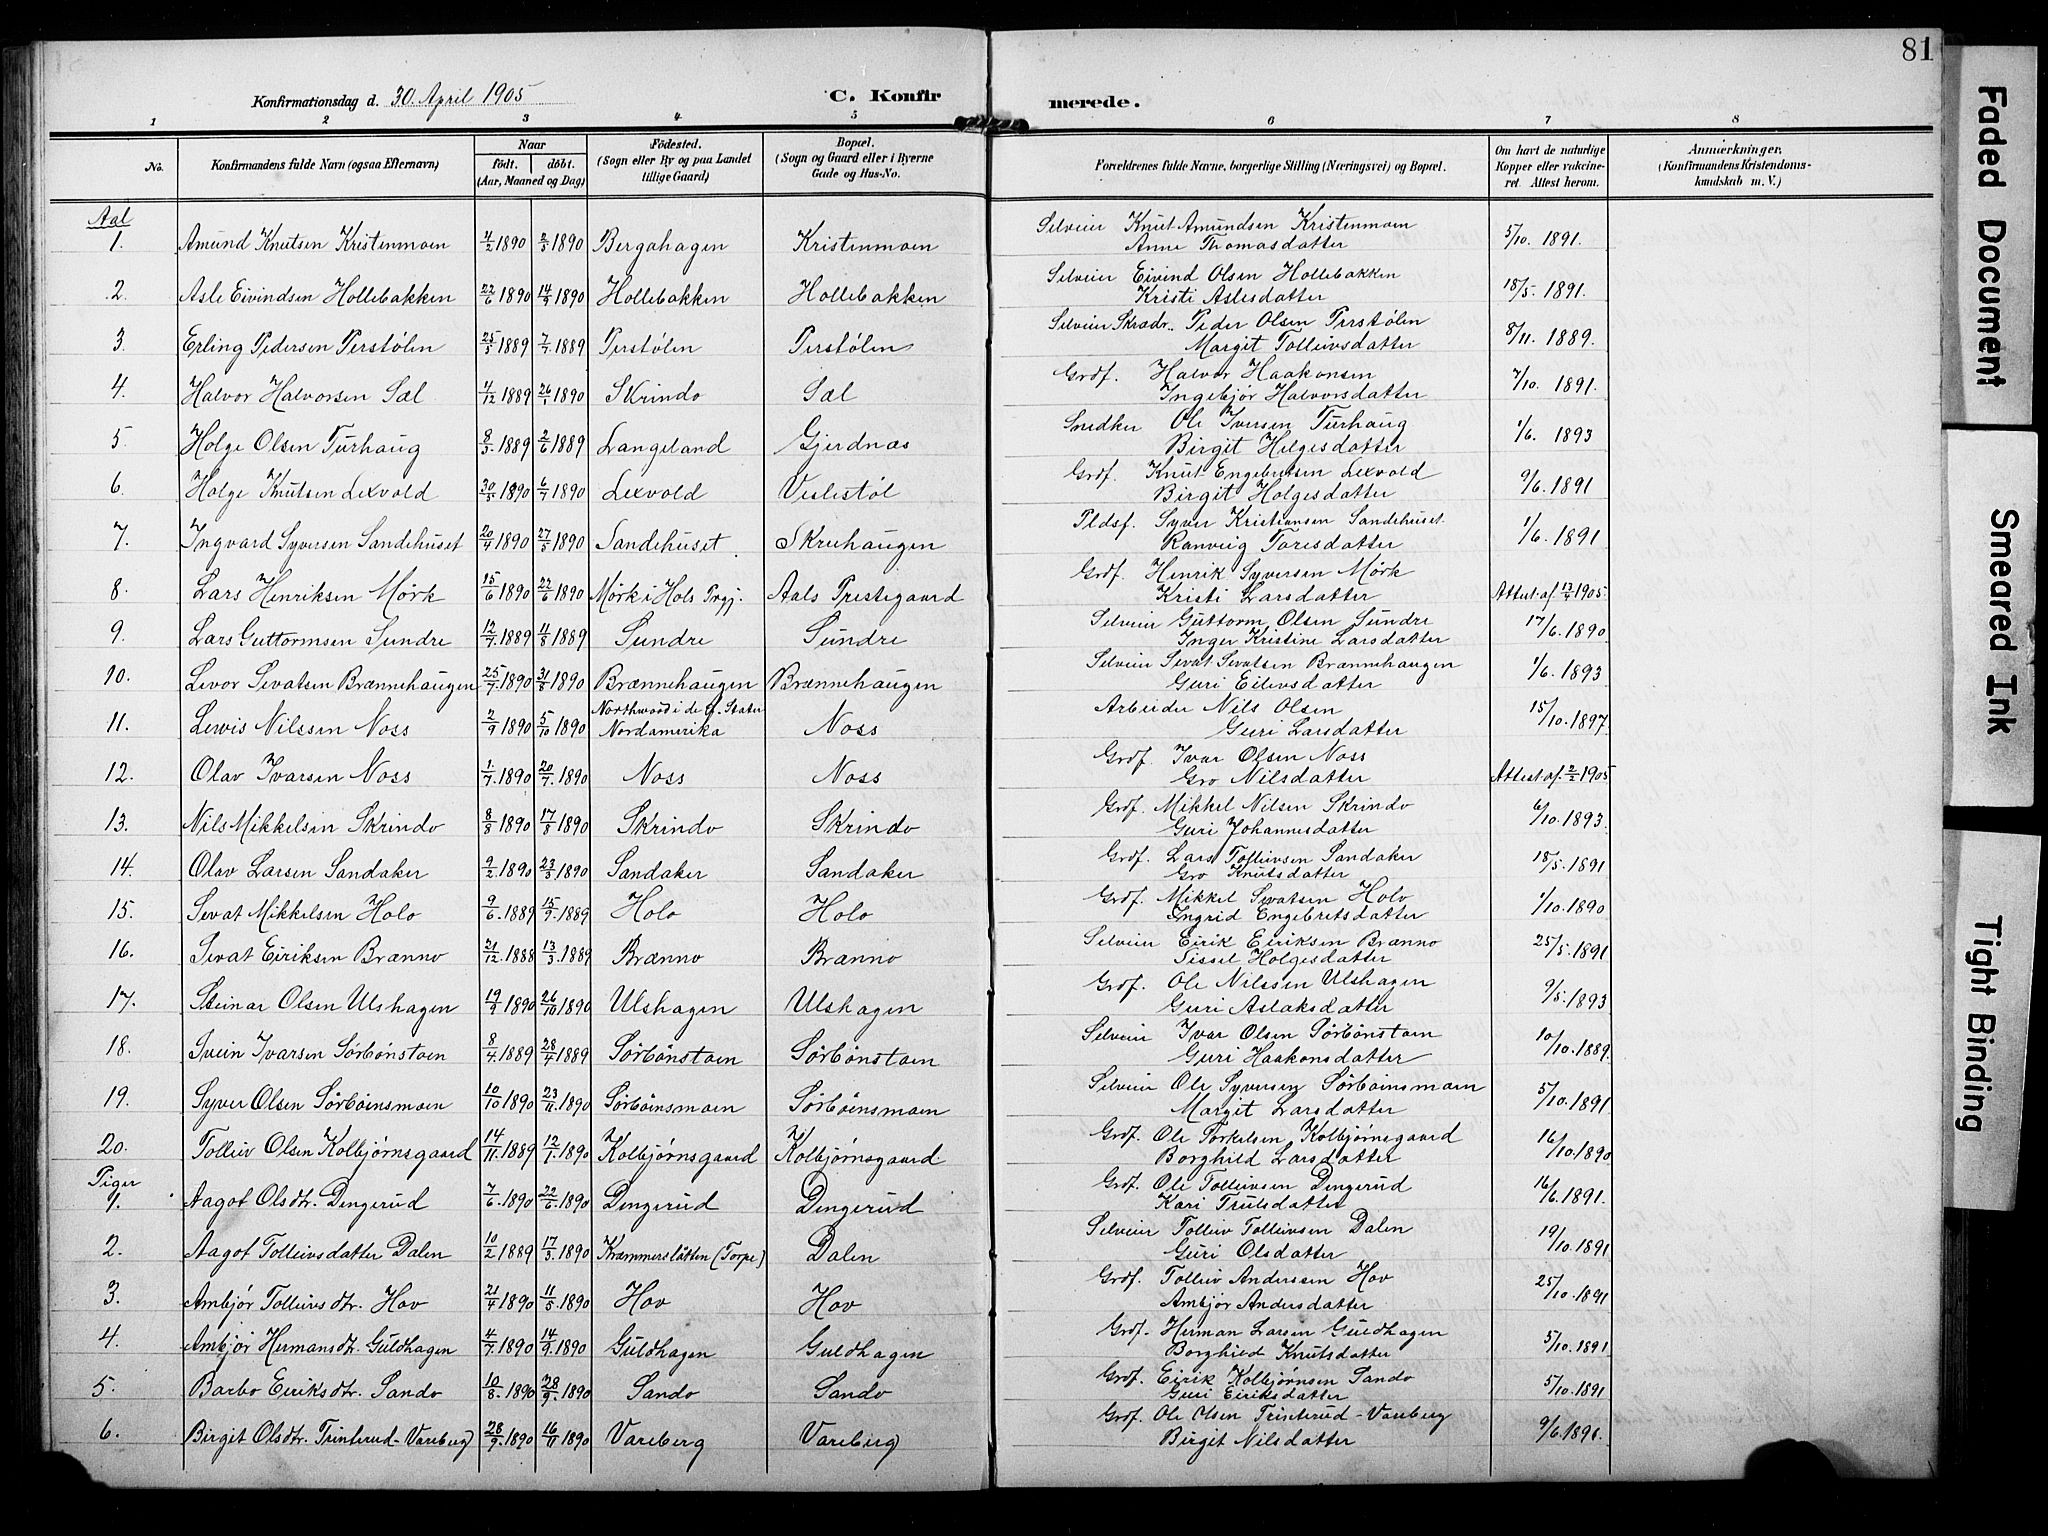 81
Konfirmationsdag d. 30. April 1905
C. Konfirmerede.
1 2 3 4 5 6 7 8
No.
Konfirmandens fulde Navn (ogsaa Efternavn)
Naar
født. døbt.
(Aar, Maaned og Dag)
Fødested.
(Sogn eller By og paa Landet
tillige Gaard)
Bopæl.
(Sogn og Gaard eller i Byerne
Gade og Hus-No.
Forældrenes fulde Navne, borgerlige Stilling (Næringsvei) og Bopæl.
Om havt de naturlige
Kopper eller vakcine-
ret. Attest herom.
Anmærkninger,
(Konfirmandens Kristendoms-
kundskab m. V.)
Aal
1. Amund Knutsen Kristenmoen 4/2 1890 2/3 1890 Bergahagen Kristenmoen Selveier Knut Amundsen Kristenmoen 5/10. 1891.
Anne Thomasdatter
2. Asle Eivindsen Hollebakken 22/6 1890 14/9 1890 Hollebakken Hollebakken Selveier Eivind Olsen Hollebakken 18/5. 1891.
Kristi Aslesdatter
3. Erling Pedersen Perstølen 25/5 1889 7/7 1889 Perstølen Perstølen Selveier Skrædr. Peder Olsen Perstølen 8/11. 1889.
Margit Tolleivsdatter
4. Halvor Halvorsen Sæl 4/12 1889 26/1 1890 Skrindo Sæl Grdf. Halvor Haakonsen 7/10. 1891.
Ingebjør Halvorsdatter
5. Holge Olsen Turhaug 8/3 1889 2/6 1889 Langeland Gjerdnas Snedker Ole Iversen Turhaug 1/6. 1893
Birgit Helgesdatter
6. Holge Knutsen Lexvold 30/5 1890 6/7 1890 Lexvold Veslestøl Grdf. Knut Engebretsen Lexvold 9/6. 1891
Birgit Holgesdatter
7. Ingvard Syversen Sandehuset 20/4 1890 27/5 1890 Sandehuset Skruhaugen Pldsf. Syver Kristiansen Sandehuset. 1/6. 1891
Ranveig Toresdatter
8. Lars Henriksen Mørk 15/6 1890 22/6 1890 Mørk i Hols Prgj. Aals Prestegaard Grdf. Henrik Syversen Mørk Attest af 13/4 1905.
Kristi Larsdatter
9. Lars Guttormsen Sundre 12/7. 1889 4/8 1889 Sundre Sundre Selveier Guttorm Olsen Sundre 17/6. 1890
Inger Kristine Larsdatter
10. Levor Sevatsen Brænnehaugen 25/7. 1890 31/8 1890 Brænnehaugen Brænnehaugen Selveier Sevat Sevatsen Brænnehaugen 1/6. 1893
Guri Eilevsdatter
11. Lewis Nilssen Noss 2/9 1890 5/10 1890 Northwood i de f. Stater Nordamerika Noss Arbeider Nils Olsen 15/10. 1897
Guri Larsdatter
12. Olav Ivarsen Noss 1/7. 1890 20/7. 1890 Noss Noss Grdf. Ivar Olsen Noss Attest af. 2/2 1905
Gro Nilsdatter
13. Nils Mikkelsen Skrindo 8/8 1890 17/8 1890 Skrindo Skrindo Grdf. Mikkel Nilsen Skrindo 6/10. 1893.
Guri Johannesdatter
14. Olav Larsen Sandaker 9/2. 1890 23/3. 1890 Sandaker Sandaker Grdf. Lars Tolleivsen Sandaker 18/5. 1891
Gro Knutsdatter
15. Sevat Mikkelsen Holo 9/6. 1889 15/9. 1889 Holo Holo Grdf. Mikkel Sevatsen Holo 1/10. 1890
Ingrid Engebretsdatter
16. Sevat Eiriksen Brænno 21/12. 1888 13/3. 1889 Brænno Brænno Selveier Eirik Eiriksen Brænno 25/5. 1891
Sissel Holgesdatter
17. Steinar Olsen Ulshagen 19/9. 1890 26/10 1890 Ulshagen Ulshagen Grdf. Ole Nilssen Ulshagen 9/5. 1893
Guri Aslaksdatter
18. Svein Ivarsen Sørbønstoen 8/4. 1889 28/4 1889 Sørbønstoen Sørbønstoen Selveier Ivar Olsen Sørbønstoen 10/10. 1889.
Guri Haakonsdatter
19. Syver Olsen Sørbøinsmoen 10/10 1890 23/11. 1890 Sørbøinsmoen Sørbøinsmoen Selveier Ole Syversen Sørbøinsmoen 5/10. 1891
Margit Larsdatter
20. Tolleiv Olsen Kolbjørnsgaard 14/11. 1889 12/1. 1890 Kolbjørnsgaard Kolbjørnsgaard. Grdf. Ole Torkelsen Kolbjørnsgaard 16/10. 1890
Borghild Larsdatter
Piger
1. Aagot Olsdtr. Dengerud 7/6. 1890 22/6. 1890 Dengerud Dengerud Grdf. Ole Tolleivsen Dengerud 16/6. 1891.
Kari Trulsdatter
2. Aagot Tolleivsdatter Dalen 10/2 1889 17/3. 1890 Kræmmerslåtten (Torpe) Dalen Selveier Tolleiv Tolleivsen Dalen 19/10. 1891
Guri Olsdatter
3. Ambjør Tolleivsdtr. Hov 21/4. 1890 11/5. 1890 Hov Hov Grdf. Tolleiv Anderssen Hov 25/10. 1891
Ambjør Andersdatter
4. Ambjør Hermansdtr. Guldhagen 4/7. 1890 14/9. 1890 Guldhagen Guldhagen Grdf. Herman Larsen Guldhagen 5/10. 1891
Borghild Knutsdatter
5. Barbo Eiriksdtr. Sando 10/8. 1890 28/9. 1890 Sando Sando Grdf. Eirik Kolbjørnsen Sando 5/10. 1891
Guri Eiriksdatter
6. Birgit Olsdtr. Trinterud-Vareberg 28/9. 1890 16/11 1890 Vareberg Vareberg Grdf. Ole Olsen Trinterud-Vareberg 9/6. 1891.
Birgit Nilsdatter
Faded Document
Smeared Ink
Tight Binding